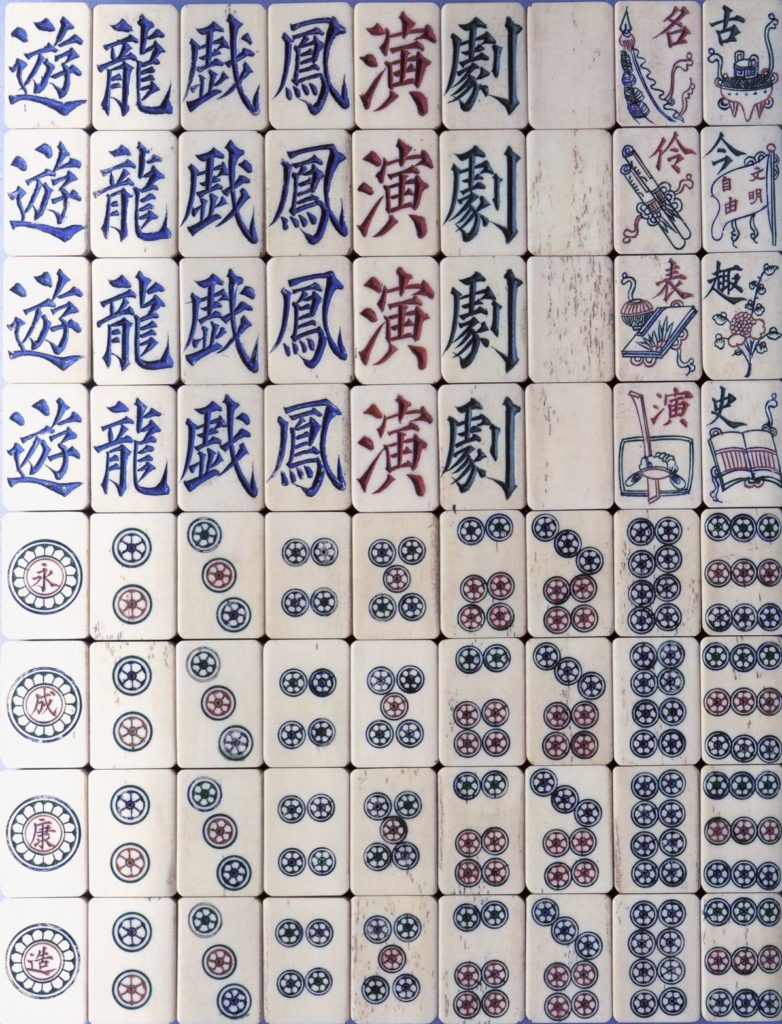 遊 龍 戲 鳳 演 劇 名 古
遊 龍 戲 鳳 演 劇 伶 今 文明 自由
遊 龍 戲 鳳 演 劇 表 趣
遊 龍 戲 鳳 演 劇 演 史
永
成
康
造